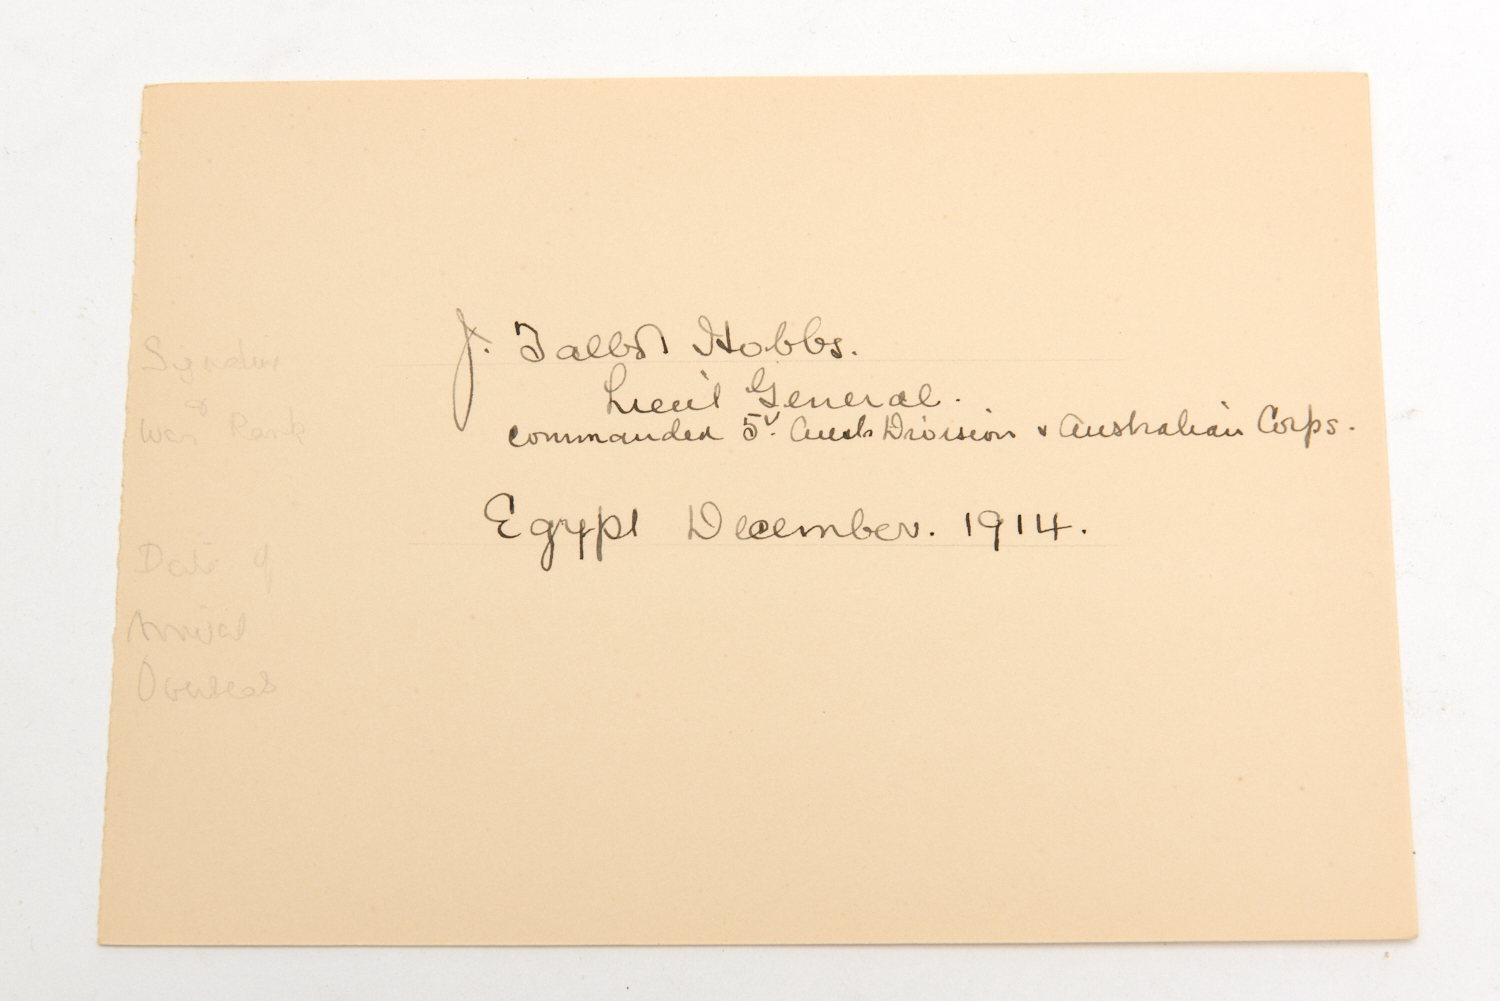 Signature
&
War Rank
J. Talbot Hobbs.
Lieut General.
commanded 5th Aust Division & Australian Corps.
Date of
Arrival
Overseas
Egypt December. 1914.